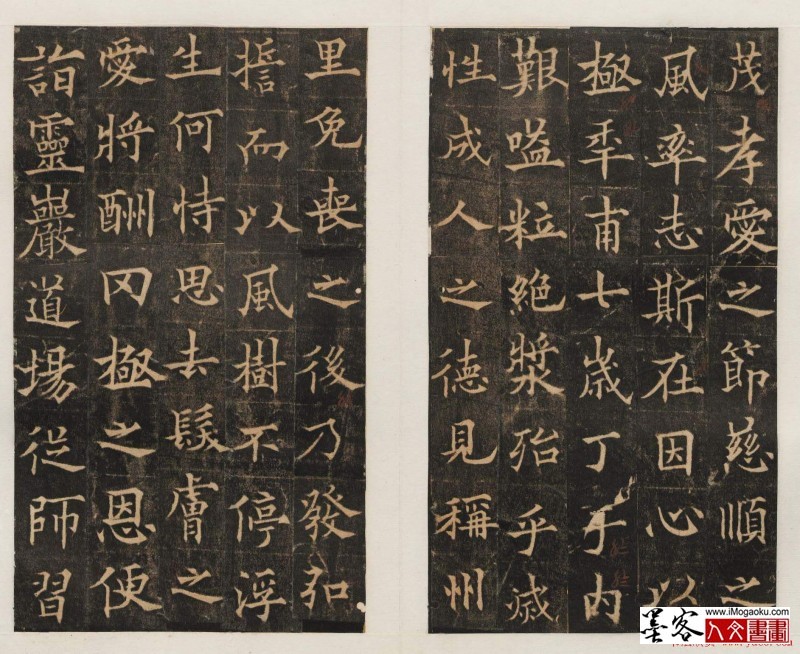 茂孝愛之節慈順之
風率志斯在因心以
極年甫七歲丁于内
艱嗌粒絕漿殆乎滅
性成人之德見稱州
里免喪之後乃發弘
擔而以風樹不停浮
生何恃思去髮膚之
愛將酬罔極之恩便
詣靈巖道場從師習
墨客 人文書畫
www.iMogaoku.com